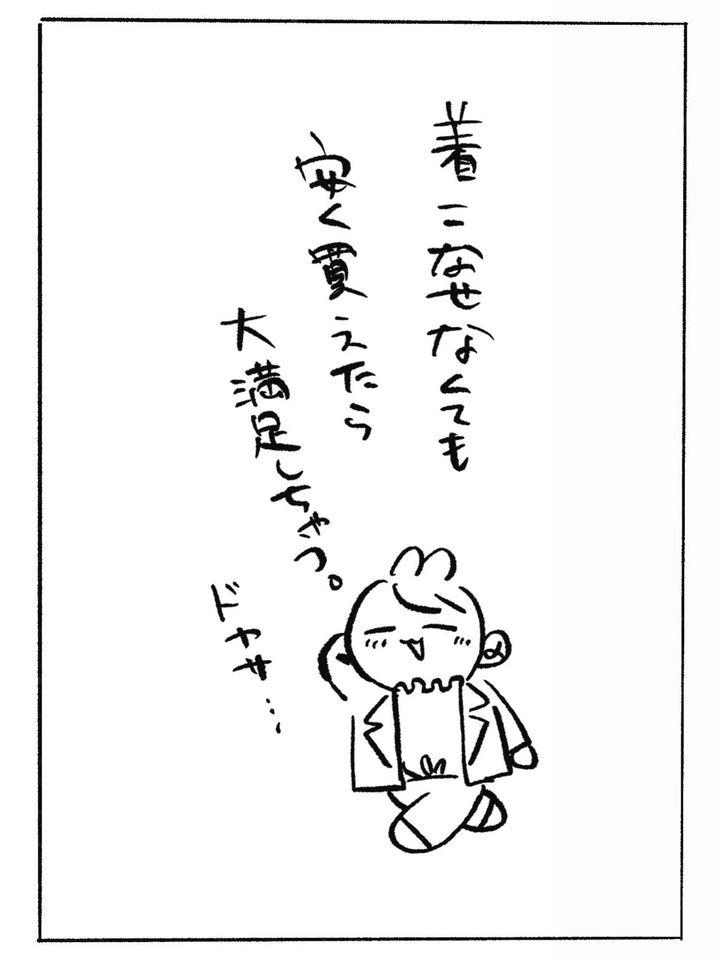 着こなせなくても
安く買えたら
大満足しちゃう。
ドヤサ…